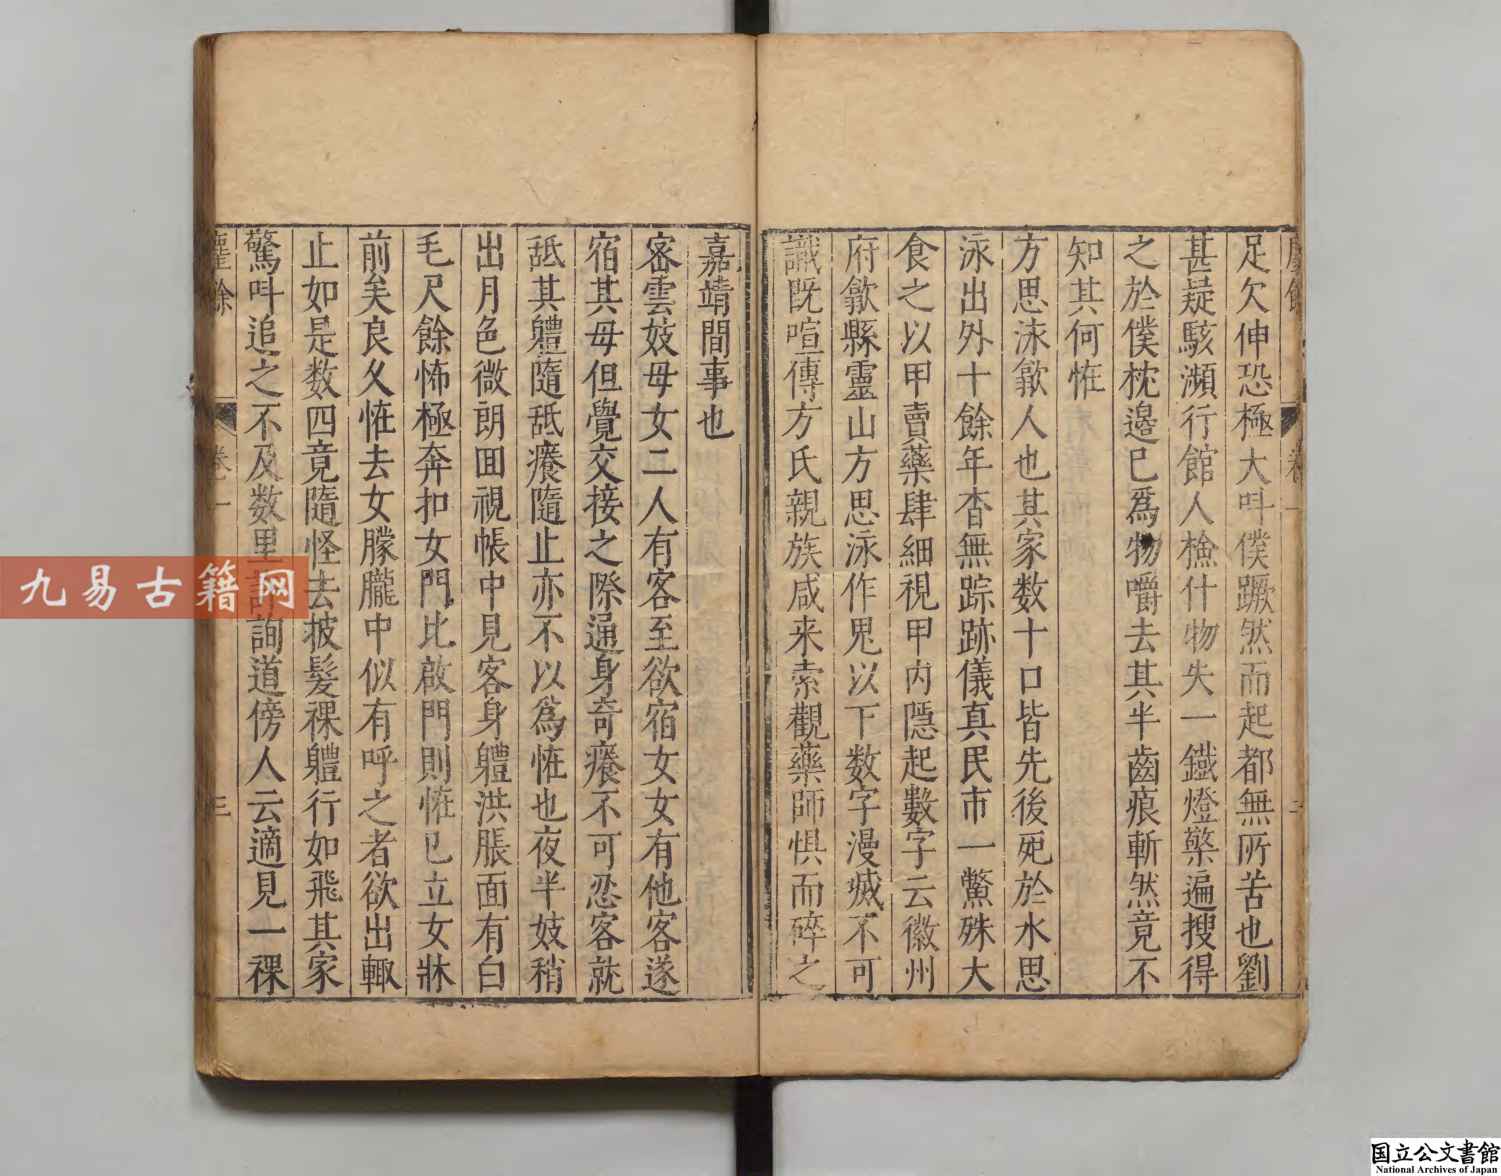 足欠伸恐極大呌僕蹶然而起都無所苦也劉
甚疑駭瀕行館人檢什物失一鐵燈檠遍搜得
之於僕枕邊已爲物嚼去其半齒痕斬然竟不
知其何恠
方思泳歙人也其家数十口皆先後死於水思
泳出外十餘年杳無踪跡儀真民市一鱉殊大
食之以甲賣藥肆細視甲内隱起數字云徽州
府歙縣靈山方思泳作鬼以下数字漫滅不可
識既喧傳方氏親族咸来索觀藥師惧而碎之
嘉靖間事也
宻雲妓母女二人有客至欲宿女女有他客遂
宿其母但覺交接之際通身奇癢不可忍客就
舐其軆隨舐癢隨止亦不以爲恠也夜半妓稍
出月色微朗回視帳中見客身軆洪脹面有白
毛尺餘怖極奔扣女門比啟門則恠已立女牀
前矣良久恠去女朦朧中似有呼之者欲出輙
止如是数四竟隨怪去披髮裸軆行如飛其家
驚呌追之不及数里詢道傍人云適見一裸
塵餘
卷一
三
九易古籍网
国立公文書館
National Archives of Japan